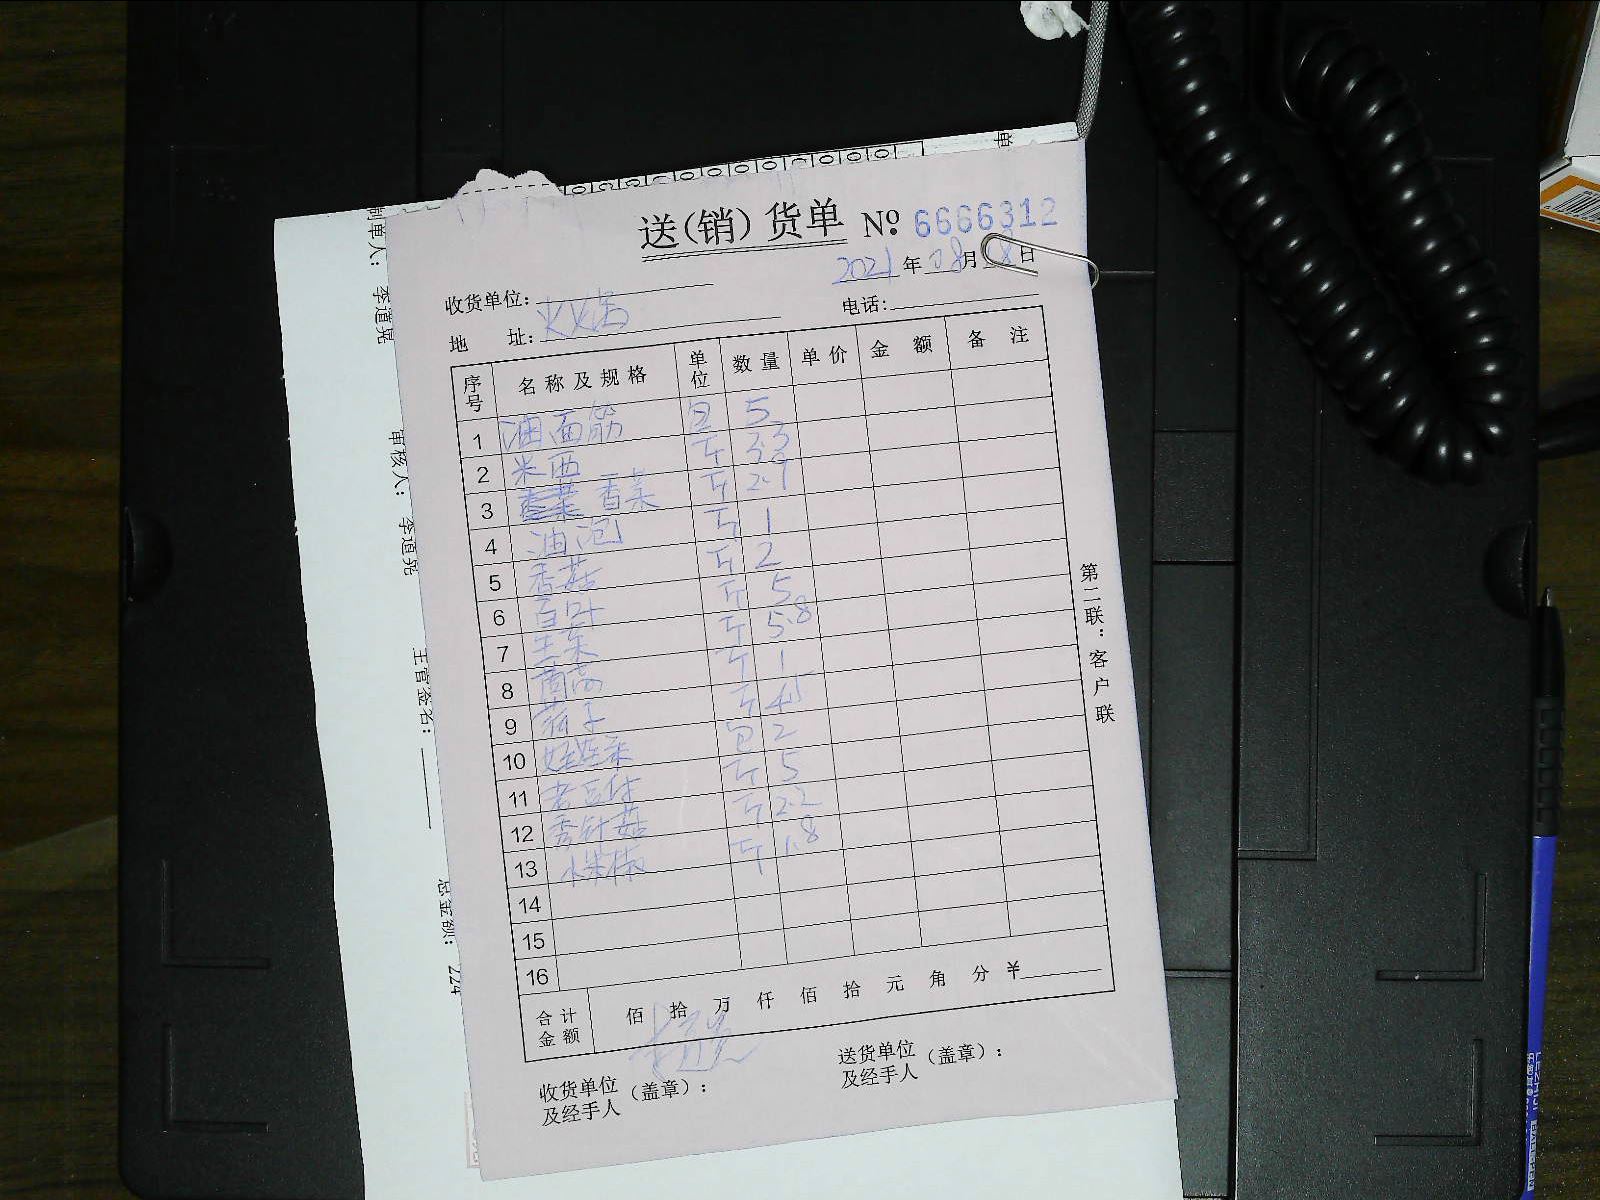 送(销)货单 No. 6666312
2021 年 08 月 18 日
收货单位:
电话:
地 址: 火火锅
序号 名称及规格 单位 数量 单价 金额 备注
1 油面筋 包 5
2 米西 斤 3.3
3 香菜 斤 2.9
4 油泡 斤 1
5 香菇 斤 2
6 百叶 斤 5
7 生菜 斤 5.8
8 茼蒿 斤 1
9 茄子 斤 4.5
10 娃娃菜 包 2
11 老豆付 斤 5
12 秀针菇 斤 2.2
13 小米椒 斤 1.8
14
15
16
合计金额 佰 拾 万 仟 佰 拾 元 角 分 ¥
收货单位及经手人(盖章):
送货单位及经手人(盖章):
第二联:客户联
制单人: 李道亮
审核人: 李道亮
主管签名:
总金额: 224
单